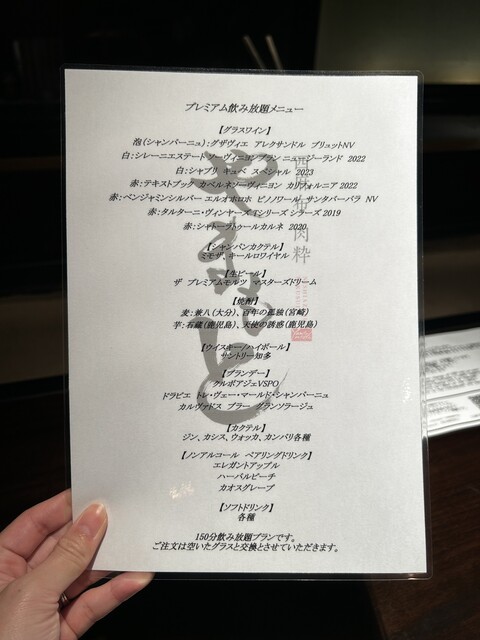 プレミアム飲み放題メニュー
【グラスワイン】
泡(シャンパーニュ):グザヴィエ アレクサンドル ブリュットNV
白:シレーニエステート ソーヴィニヨンブラン ニュージーランド 2022
白:シャブリ キュベ スペシャル 2023
赤:テキストブック カベルネソーヴィニヨン カリフォルニア 2022
赤:ベンジャミンシルバー エルオホロホ ピノノワール サンタバーバラ NV
赤:タルターニ・ヴィンヤーズ Tシリーズ シラーズ 2019
赤:シャトートゥースカルネ 2020
【シャンパンカクテル】
ミモザ、キールロワイヤル
【生ビール】
ザ プレミアムモルツ マスターズドリーム
【焼酎】
麦:兼八(大分)、百年の孤独(宮崎)
芋:石蔵(鹿児島)、天使の誘惑(鹿児島)
【ウイスキー/ハイボール】
サントリー知多
【ブランデー】
クルボアジェVSPO
ドラピエ トレ・ヴュー・マールド・シャンパーニュ
カルヴァドス ブラー グランソラージュ
【カクテル】
ジン、カシス、ウォッカ、カンパリ各種
【ノンアルコール ペアリングドリンク】
エレガントアップル
ハーバルピーチ
カオスグレープ
【ソフトドリンク】
各種
150分飲み放題プランです。
ご注文は空いたグラスと交換とさせていただきます。
西麻布 肉粋